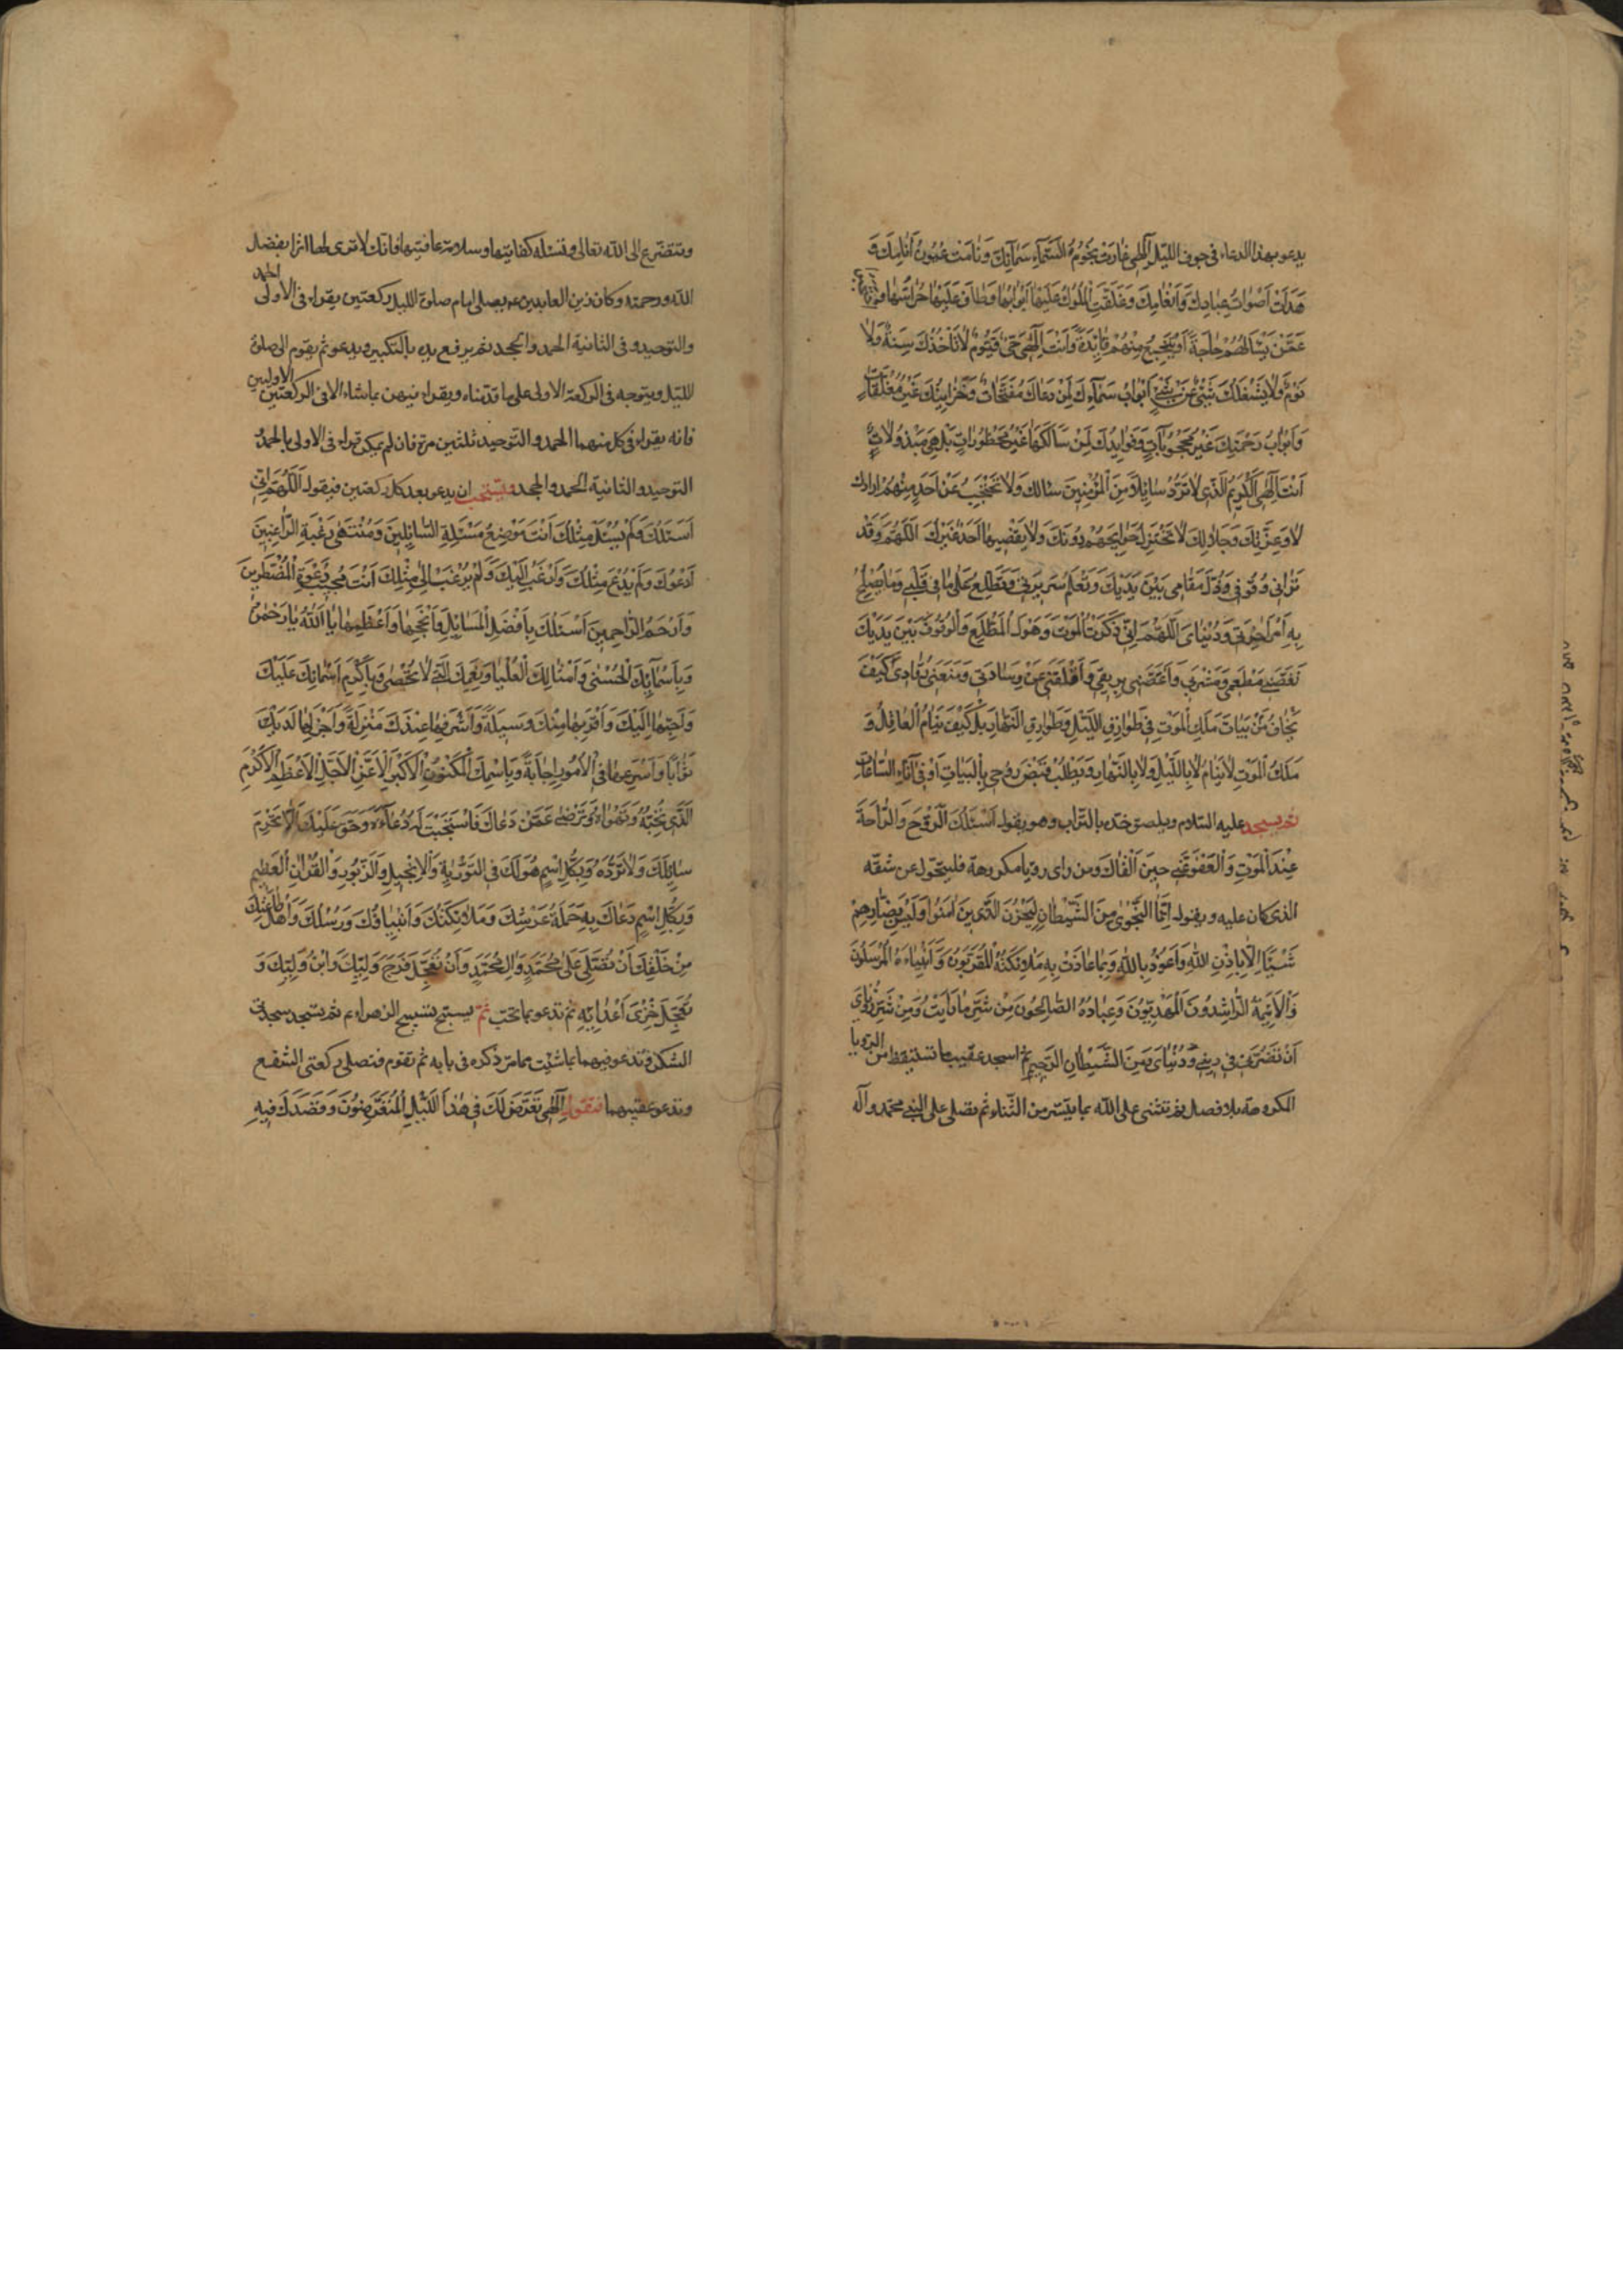 يدعو بهذا الدعاء في جوف الليل اِلٰهي غارَت نُجُومُ سَمآئِكَ وَنامَت عُيُونُ اَنامِكَ وَ
هَدَاَت اَصواتُ عِبادِكَ وَاَنعامِكَ وَغَلَّقَتِ المُلُوكُ عَلَيها اَبوابَها وَطافَ عَلَيها حُرّاسُها
عَمَّن يَسأَلُهُم حاجَةً اَو يَنتَجِعُ مِنهُم فائِدَةً وَاَنتَ اِلٰهي حَيٌّ قَيُّومٌ لا تَأخُذُكَ سِنَةٌ وَلا
نَومٌ وَلا يَشغَلُكَ شَيءٌ عَن شَيءٍ اَبوابُ سَمآئِكَ لِمَن دَعاكَ مُفَتَّحاتٌ وَخَزآئِنُكَ غَيرُ مُغلَّقاتٍ
وَاَبوابُ رَحمَتِكَ غَيرُ مَحجُوباتٍ وَفَوائِدُكَ لِمَن سَألَكَها غَيرُ مَحظُوراتٍ بَل هِيَ مَبذُولاتٌ
اَنتَ اِلٰهي الكَريمُ الَّذي لا تَرُدُّ سائِلاً مِنَ المُؤمِنينَ سَألَكَ وَلا تَحتَجِبُ عَن اَحَدٍ مِنهُم اَرادَكَ
لا وَعِزَّتِكَ وَجَلالِكَ لا تُختَزَلُ حَوائِجُهُم دُونَكَ وَلا يَقضيها اَحَدٌ غَيرُكَ اَللّٰهُمَّ وَقَد
تَراني وَوُقُوفي وَذُلَّ مَقامي بَينَ يَدَيكَ وَتَعلَمُ سَريرَتي وَتَطَّلِعُ عَلٰى ما في قَلبي وَما يَصلُحُ
بِهِ اَمرُ اٰخِرَتي وَدُنيايَ اَللّٰهُمَّ اِنّي ذَكَرتُ المَوتَ وَهَولَ المُطَّلَعِ وَالوُقُوفَ بَينَ يَدَيكَ
نَغَّصَني مَطعَمي وَمَشرَبي وَاَغَصَّني بِريقي وَاَقلَقَني عَن وِسادَتي وَمَنَعَني رُقادي كَيفَ
يَنامُ مَن يَخافُ بَياتَ مَلَكِ المَوتِ في طَوارِقِ اللَّيلِ وَطَوارِقِ النَّهارِ بَل كَيفَ يَنامُ العاقِلُ وَ
مَلَكُ المَوتِ لا يَنامُ لا بِاللَّيلِ وَلا بِالنَّهارِ وَيَطلُبُ قَبضَ رُوحي بِالبَياتِ اَو في آناءِ السّاعاتِ
ثم يسجد عليه السلام ويلصق خدّه بالتراب وهو يقول اَسئَلُكَ الرَّوحَ وَالرّاحَةَ
عِندَ المَوتِ وَالعَفوَ عَنّي حينَ اَلقاكَ ومن راى رؤيا مكروهة فليتحوّل عن شقّه
الذي كان عليه ويقول اِنَّمَا النَّجوٰى مِنَ الشَّيطانِ لِيَحزُنَ الَّذينَ اٰمَنُوا وَلَيسَ بِضارِّهِم
شَيئًا اِلّا بِاِذنِ اللهِ وَاَعُوذُ بِاللهِ وَبِما عاذَت بِهِ مَلائِكَتُهُ المُقَرَّبُونَ وَاَنبِياءُهُ المُرسَلُونَ
وَالاَئِمَّةُ الرّاشِدُونَ المَهدِيُّونَ وَعِبادُهُ الصّالِحُونَ مِن شَرِّ ما رَاَيتُ وَمِن شَرِّ رُؤيايَ
اَن تَضُرَّني في ديني وَدُنيايَ وَمِنَ الشَّيطانِ الرَّجيمِ ثم اسجد عقيب ما تستيقظ من الرؤيا
المكروهة بلا فصل ثم تثني على الله بما تيسّر من الثناء ثم تصلى على النبي محمد وآله
وتتضرّع الى الله تعالى وتسئله كفايتها وسلامة عاقبتها فانّك لا ترى لها اثرا بفضل
الله ورحمته وكان زين العابدين ع يصلى امام صلوة الليل ركعتين يقراء في الاولى الحمد
والتوحيد وفي الثانية الحمد والجحد ثم يرفع يديه بالتكبير ويدعو ثم يقوم الى صلوة
الليل ويتوجه في الركعة الاولى على ما قدّمناه ويقراء فيهن بما شاء الا في الركعتين الاوليين
فانه يقراء في كل منهما الحمد والتوحيد ثلثين مرة فان لم يمكن قراء في الاولى بالحمد و
التوحيد والثانية الحمد والجحد ويستحب ان يدعو بعد كل ركعتين فيقول اَللّٰهُمَّ اِنّي
اَسئَلُكَ وَلَم يُسئَل مِثلُكَ اَنتَ مَوضِعُ مَسئَلَةِ السّائِلينَ وَمُنتَهٰى رَغبَةِ الرّاغِبينَ
اَدعُوكَ وَلَم يُدعَ مِثلُكَ وَاَرغَبُ اِلَيكَ وَلَم يُرغَب اِلٰى مِثلِكَ اَنتَ مُجيبُ دَعوَةِ المُضطَرّينَ
وَاَرحَمُ الرّاحِمينَ اَسئَلُكَ بِاَفضَلِ المَسائِلِ وَاَنجَحِها وَاَعظَمِها يا اَللهُ يا رَحمٰنُ
وَبِاَسمآئِكَ الحُسنٰى وَاَمثالِكَ العُليا وَنِعَمِكَ الَّتي لا تُحصٰى وَبِاَكرَمِ اَسمائِكَ عَلَيكَ
وَاَحَبِّها اِلَيكَ وَاَقرَبِها مِنكَ وَسيلَةً وَاَشرَفِها عِندَكَ مَنزِلَةً وَاَجزَلِها لَدَيكَ
ثَوابًا وَاَسرَعِها في الاُمُورِ اِجابَةً وَبِاسمِكَ المَكنُونِ الاَكبَرِ الاَعَزِّ الاَجَلِّ الاَعظَمِ الاَكرَمِ
الَّذي تُحِبُّهُ وَتَهواهُ وَتَرضٰى عَمَّن دَعاكَ فَاستَجَبتَ لَهُ دُعآءَهُ وَحَقٌّ عَلَيكَ اَلّا تَحرِمَ
سائِلَكَ وَلا تَرُدَّهُ وَبِكُلِّ اسمٍ هُوَ لَكَ في التَّورٰيةِ وَالاِنجيلِ وَالزَّبُورِ وَالقُراٰنِ العَظيمِ
وَبِكُلِّ اسمٍ دَعاكَ بِهِ حَمَلَةُ عَرشِكَ وَمَلائِكَتُكَ وَاَنبِياؤُكَ وَرُسُلُكَ وَاَهلُ طاعَتِكَ
مِن خَلقِكَ اَن تُصَلِّيَ عَلٰى مُحَمَّدٍ وَاٰلِ مُحَمَّدٍ وَاَن تُعَجِّلَ فَرَجَ وَلِيِّكَ وَابنِ وَلِيِّكَ وَ
تُعَجِّلَ خِزيَ اَعدائِهِ ثم تدعو بما تحب ثم تسبح تسبيح الزهراء ع ثم تسجد سجدتي
الشكر فتدعو فيهما بما شئت مما مرّ ذكره في بابه ثم تقوم فتصلى ركعتى الشفع
وتدعو عقيبهما فتقول اِلٰهي تَعَرَّضَ لَكَ في هٰذَا اللَّيلِ المُتَعَرِّضُونَ وَقَصَدَكَ فيهِ